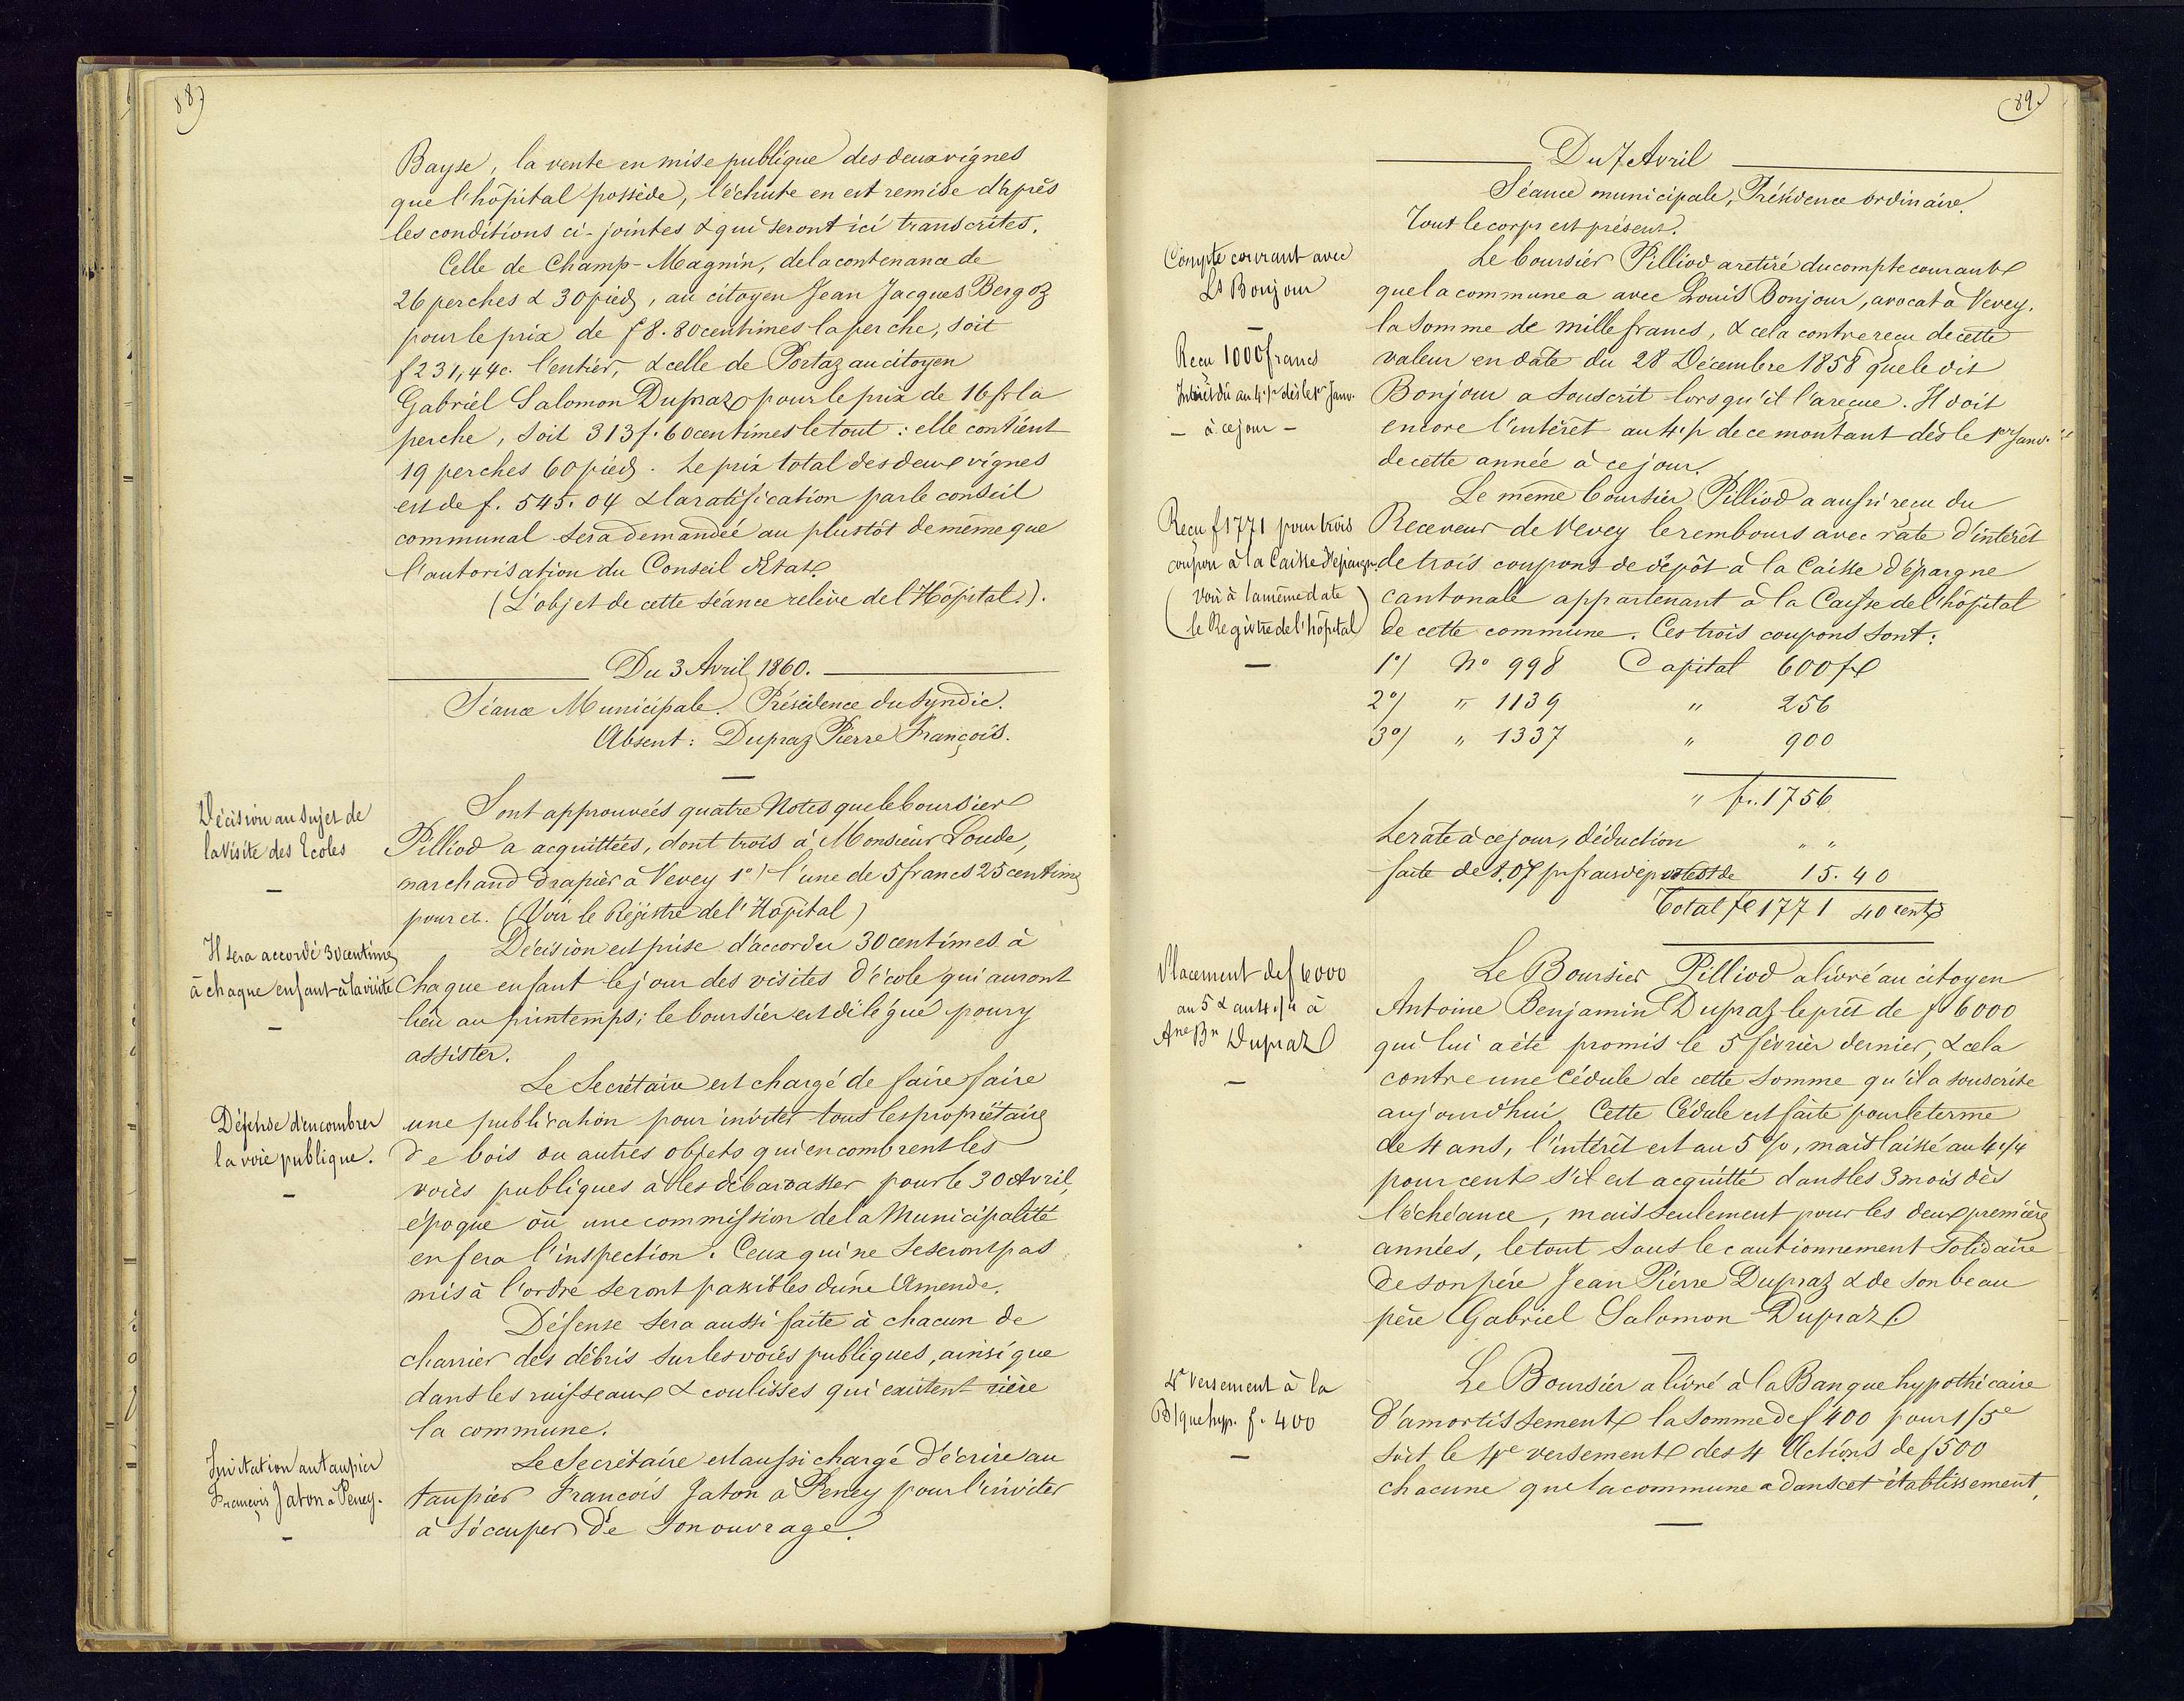 88)
Bayse, la vente en mise publique des deux vignes
que l'hôpital possède, l'échute en est remise d'après
les conditions ci-jointes & qui seront ici transcrites.
Celle de Champ-Magnin, de la contenance de
26 perches & 30 pieds, au citoyen Jean Jacques Bergoz
pour le prix de f 8.80 centimes la perche, soit
f 231,44c. l'entier, & celle de Portaz au citoyen
Gabriel Salomon Dupraz pour le prix de 16 fr la
perche, soit 313 f. 60 centimes le tout : elle contient
19 perches 60 pieds. Le prix total des deux vignes
est de f. 545.04 & la ratification par le conseil
communal sera demandée au plustôt de même que
l'autorisation du Conseil d'Etat.
(L'objet de cette séance relève de l'Hôpital.).
Du 3 Avril 1860.
Séance Municipale. Présidence du Syndic.
Absent : Dupraz Pierre François.
Décision au sujet de
la visite des Ecoles
Sont approuvées quatre Notes que le boursier
Pilliod a acquittées, dont trois à Monsieur Loude,
marchand drapier à Vevey 1°) l'une de 5 francs 25 centimes
pour et. (Voir le Régistre de l'Hôpital)
Il sera accordé 30 centimes
à chaque enfant à la visite
Décision est prise d'accorder 30 centimes à
chaque enfant le jour des visites d'école qui auront
lieu au printemps; le boursier est délégué pour y
assister.
Défense d'encombrer
la voie publique.
Le Secrétaire est chargé de faire faire
une publication pour inviter tous les propriétaires
de bois ou autres objets qui encombrent les
voies publiques à les débarrasser pour le 30 Avril,
époque où une commission de la Municipalité
en fera l'inspection. Ceux qui ne se seront pas
mis à l'ordre seront passibles d'une Amende.
Défense sera aussi faite à chacun de
charrier des débris sur les voies publiques, ainsi que
dans les ruisseaux & coulisses qui existent rière
la commune.
Invitation au taupier
François Jaton à Peney.
Le Secrétaire est aussi chargé d'écrire au
taupier François Jaton à Peney pour l'inviter
à s'occuper de son ouvrage.
89
Du 7 Avril
Séance municipale, Présidence ordinaire.
Tout le corps est présent.
Compte courant avec
Ls Bonjour
Reçu 1000 francs
Intérêt dû au 4 p% dès le 1er Janv.
à ce jour
Le boursier Pilliod a retiré du compte courant
que la commune a avec Louis Bonjour, avocat à Vevey,
la somme de mille francs, & cela contre reçu de cette
valeur en date du 28 Décembre 1858 que le dit
Bonjour a souscrit lorsqu'il l'a reçue. Il doit
encore l'intérêt au 4 p% de ce montant dès le 1er Janv.
de cette année à ce jour.
Reçu f 1771 pour trois
coupon à la Caisse d'épargne.
(Voir à la même date
le Registre de l'hôpital)
Le même boursier Pilliod a aussi reçu du
Receveur de Vevey le rembours avec rate d'intérêt
de trois coupons de dépôt à la Caisse d'épargne
cantonale appartenant à la Caisse de l'hôpital
de cette commune. Ces trois coupons sont :
1°/ No 998 Capital 600 fr
2°/ " 1139 " 256
3°/ " 1337 " 900
" fr. 1756
Le rate à ce jour, déduction " "
faite de f.07 pr frais de port est de 15.40
Total fr 1771 40 cents
Placement de f 6000
au 5 & au 4 1/4 à
Ane Bn Dupraz
Le Boursier Pilliod a livré au citoyen
Antoine Benjamin Dupraz le prêt de f 6000
qui lui a été promis le 5 février dernier, & cela
contre une Cédule de cette somme qu'il a souscrite
aujourd'hui. Cette Cédule est faite pour le terme
de 4 ans, l'intérêt est au 5 %, mais laissé au 4 1/4
pour cent s'il est acquitté dans les 3 mois dès
l'échéance, mais seulement pour les deux premières
années, le tout sous le cautionnement solidaire
de son père Jean Pierre Dupraz & de son beau
père Gabriel Salomon Dupraz.
4e Versement à la
B/que hyp. f. 400
Le Boursier a livré à la Banque hypothécaire
d'amortissement la somme de f 400 pour 1/5e
soit le 4e versement des 4 Actions de f 500
chacune que la commune a dans cet établissement.